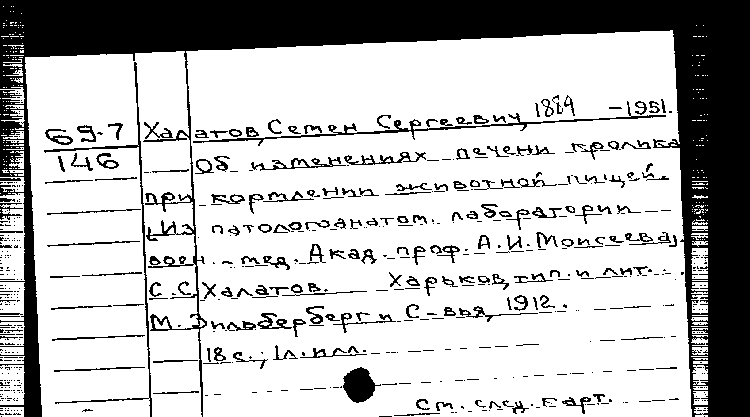 69.7 Халатов, Семен Сергеевич, 1884 -1951.
146 Об изменениях печени кролика
при кормлении животной пищей.
[Из патологоанатом. лаборатории
воен.-мед. Акад. проф. А.И. Моисеева].
С.С. Халатов. Харьков, тип. и лит.
М. Зильберберг и С-вья, 1912.
18 с.; 1 л. илл.
См. след. карт.